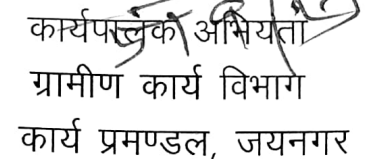 कार्यपालक अभियंता
ग्रामीण कार्य विभाग
कार्य प्रमण्डल, जयनगर